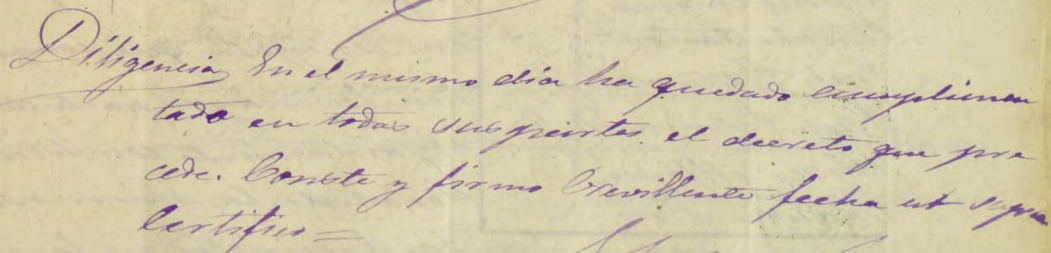 Diligencia En el mismo dia ha quedado cumplimen
tado en todas sus partes el decreto que pre
cede. Conste y firmo Crevillente fecha ut supra
Certifico=